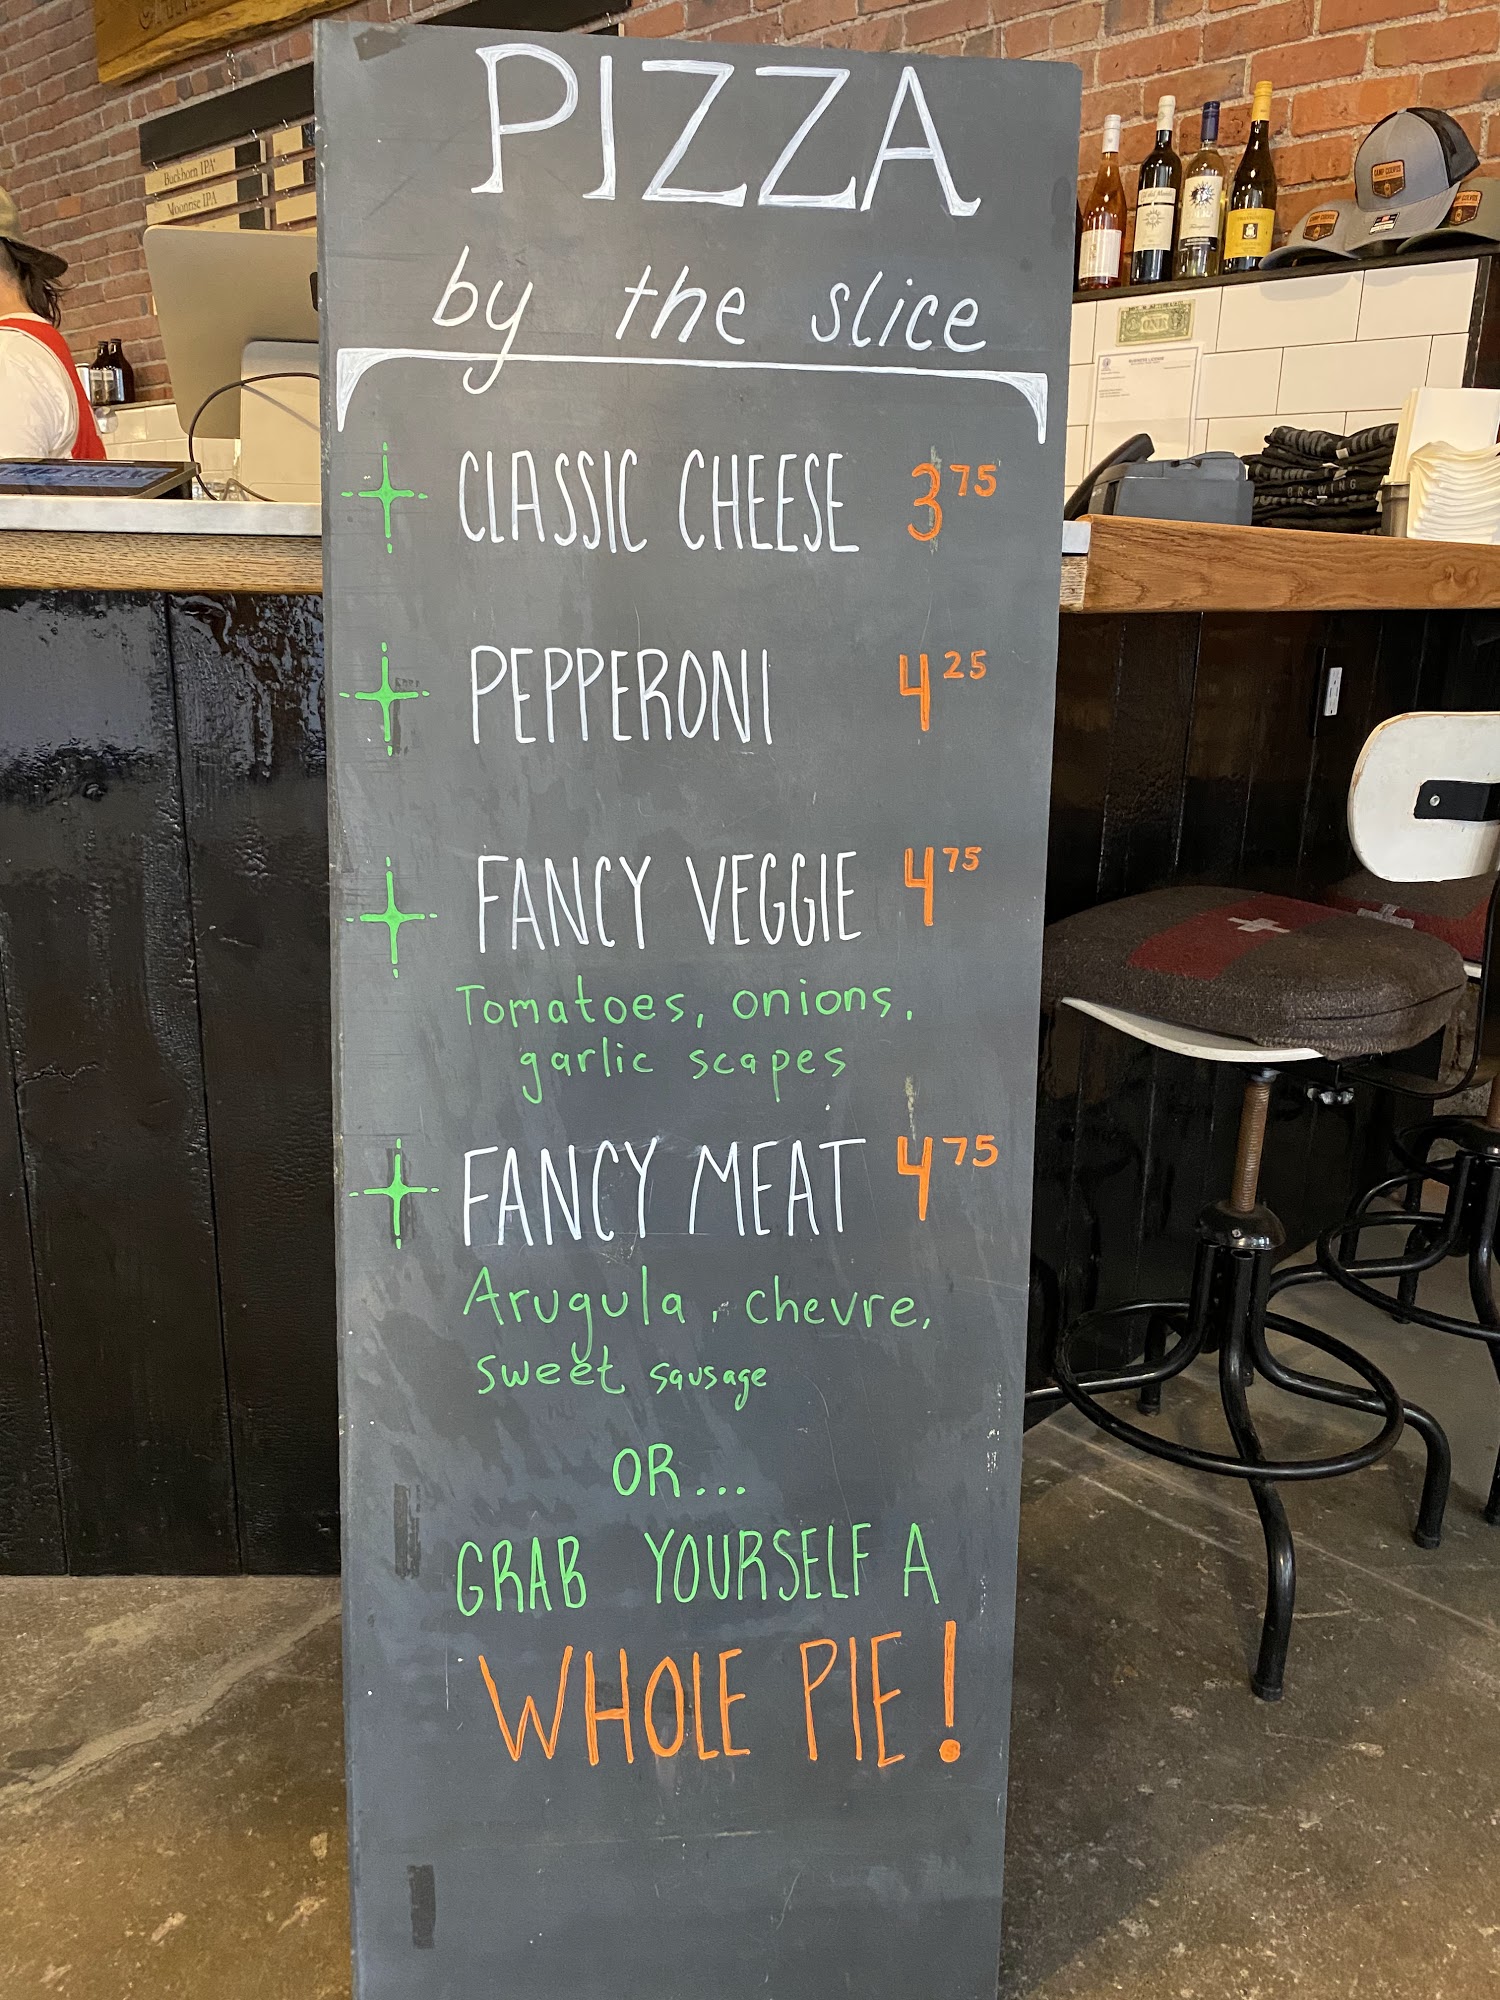 PIZZA
by the slice
CLASSIC CHEESE 3 75
PEPPERONI 4 25
FANCY VEGGIE 4 75
Tomatoes, onions,
garlic scapes
FANCY MEAT 4 75
Arugula, chevre,
sweet sausage
OR...
GRAB YOURSELF A
WHOLE PIE!
Buckhorn IPA
Moonrise IPA
CAMP COLVOS
CAMP COLVOS
ONE
BUSINESS LICENSE
BREWING